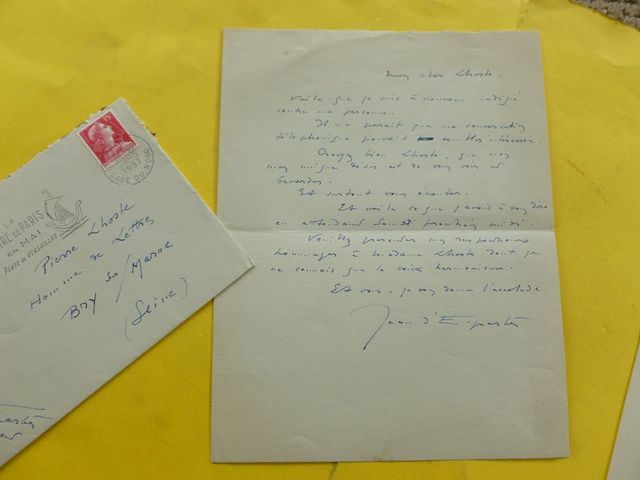 Mon cher Lhoste,
Voilà que je suis à nouveau indigné
contre ma personne.
Il me paraît que ma conversation
téléphonique pouvait sembler intéressée.
Croyez bien Lhoste, que mon
mon unique désir est de vous voir et
bavarder.
Et surtout vous écouter.
Et voilà ce que j'avais à vous dire
en attendant Samedi prochain midi.
Veuillez présenter mes
hommages à Madame Lhoste dont je
ne connais que la voix harmonieuse.
Et vous, je vous donne l'accolade.
Jean d'Esparbès
LA
RE DE PARIS
EN MAI
PORTE DE VERSAILLES
GARE DU NORD
Pierre Lhoste
Homme de Lettres
Bry sur/Marne
(Seine)